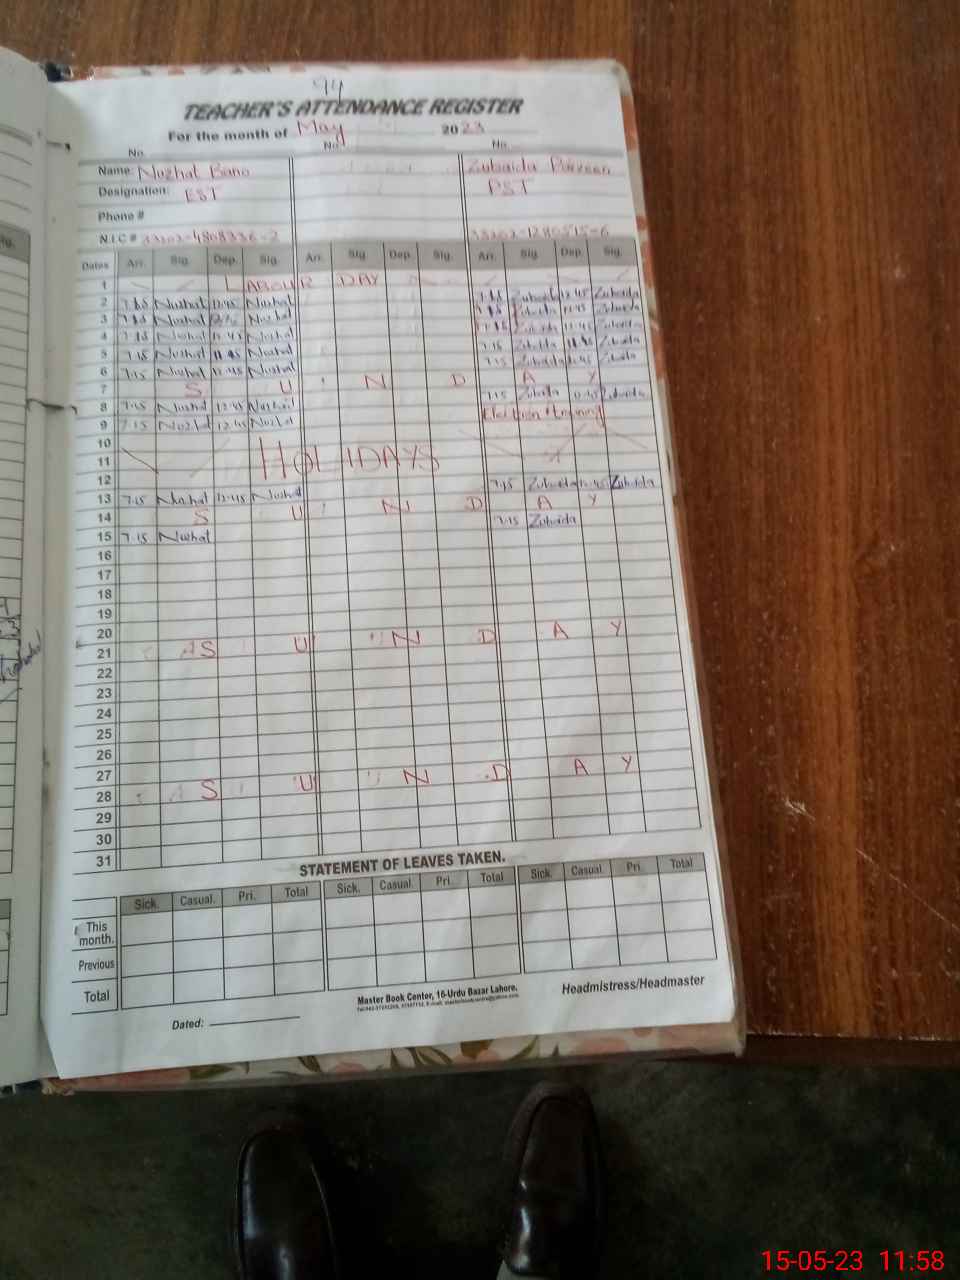 94
TEACHER'S ATTENDANCE REGISTER
For the month of May 2023
No. No. No.
Name: Nuzhat Bano Zubaida Parveen
Designation: EST PST
Phone #
N.I.C #
Dates Arr. Sig. Dep. Sig. Arr. Sig. Dep. Sig. Arr. Sig. Dep. Sig.
1 LABOUR DAY
2 7.15 Nuzhat 12.45 Nuzhat 7.15 Zubaida 12.45 Zubaida
3 7.15 Nuzhat Nuzhat 7.15 Zubaida 12.45 Zubaida
4 7.15 Nuzhat 12.45 Nuzhat 7.15 Zubaida 12.45 Zubaida
5 7.15 Nuzhat 11.45 Nuzhat 7.15 Zubaida 11.45 Zubaida
6 7.15 Nuzhat 12.45 Nuzhat 7.15 Zubaida 12.45 Zubaida
7 S U N D A Y
8 7.15 Nuzhat 12.45 Nuzhat 7.15 Zubaida 12.45 Zubaida
9 7.15 Nuzhat 12.45 Nuzhat Election training
10
11 HOLIDAYS
12
13 7.15 Nuzhat 12.45 Nuzhat 7.15 Zubaida 12.45 Zubaida
14 S U N D A Y
15 7.15 Nuzhat 7.15 Zubaida
16
17
18
19
20
21 S U N D A Y
22
23
24
25
26
27
28 S U N D A Y
29
30
31
STATEMENT OF LEAVES TAKEN.
Sick. Casual. Pri. Total Sick. Casual. Pri. Total Sick. Casual. Pri. Total
This month.
Previous
Total
Master Book Center, 16-Urdu Bazar Lahore.
Headmistress/Headmaster
Dated:
15-05-23 11:58